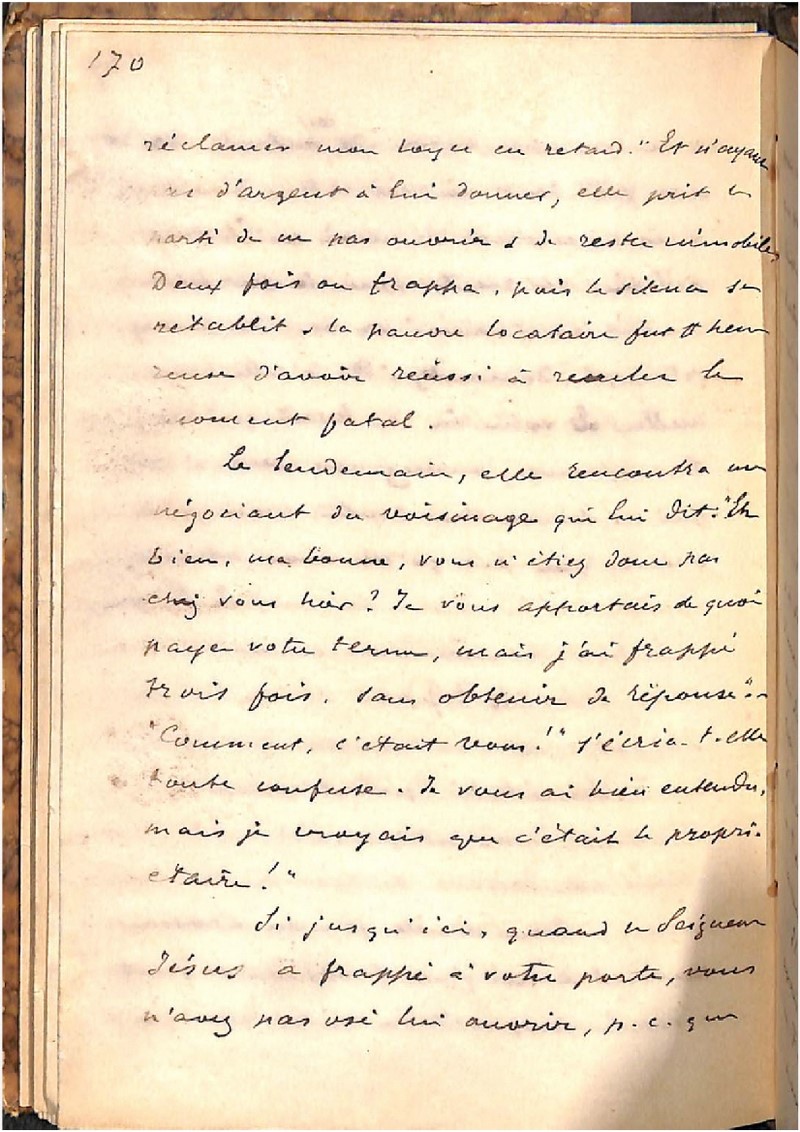 170
réclamer mon loyer en retard." Et n'ayant
pas d'argent à lui donner, elle prit le
parti de ne pas ouvrir & de rester immobile.
Deux fois on frappa, puis le silence se
rétablit & la pauvre locataire fut heu-
reuse d'avoir réussi à reculer le
moment fatal.
Le lendemain, elle rencontra un
négociant du voisinage qui lui dit: "Eh
bien, ma bonne, vous n'étiez donc pas
chez vous hier? Je vous apportais de quoi
payer votre terme, mais j'ai frappé
trois fois, sans obtenir de réponse". -
"Comment, c'était vous!" s'écria-t-elle
toute confuse. Je vous ai bien entendu,
mais je croyais que c'était le propri-
étaire!"
Si jusqu'ici, quand le Seigneur
Jésus a frappé à votre porte, vous
n'avez pas osé lui ouvrir, p.c. que